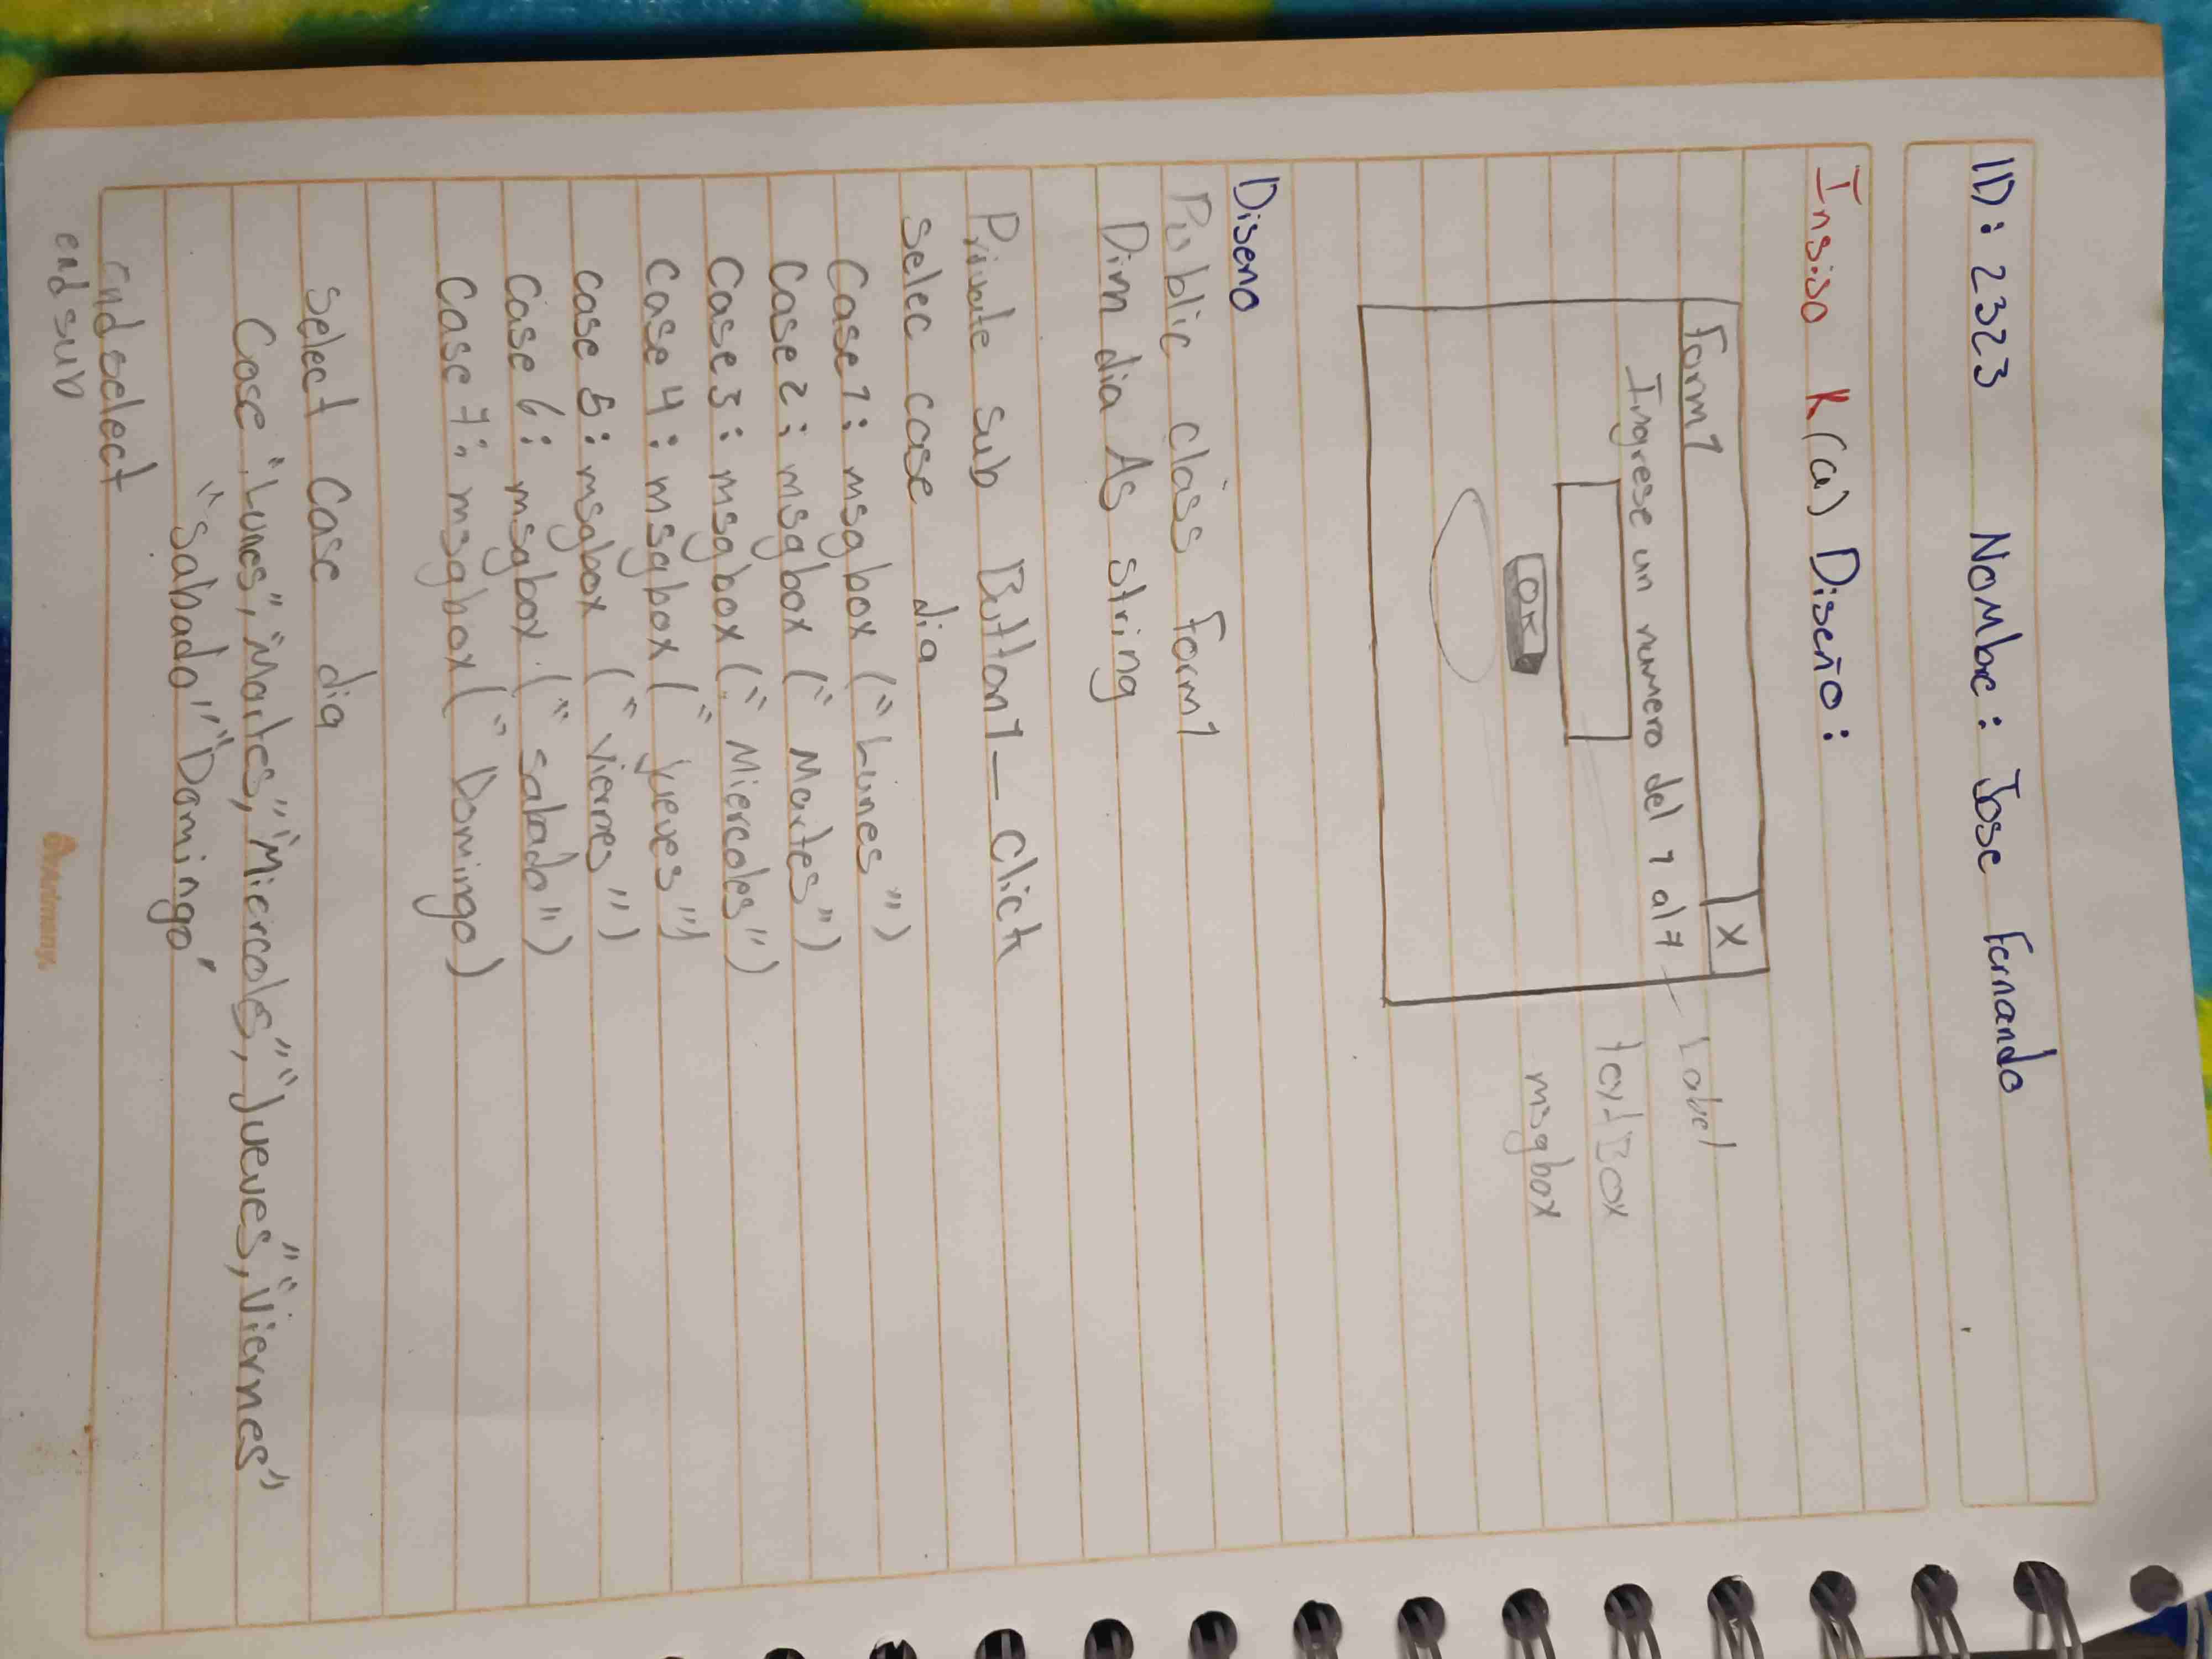 ID: 2323 Nombre: Jose Fernando
Insiso K(a) Diseño:
Form1 X
Ingrese un numero del 1 al 7 Label
textBox
OK msgbox
Diseno
Public class Form1
Dim dia As string
Private sub Button1_Click
selec case dia
Case 1: msgbox ("Lunes")
Case 2: msgbox ("Martes")
Case 3: msgbox ("Miercoles")
Case 4: msgbox ("jueves")
case 5: msgbox ("viernes")
Case 6: msgbox ("sabado")
Case 7: msgbox ("Domingo)
select Case dia
Case "Lunes", "Martes," "Miercoles," "Jueves," "Viernes"
"sabado" "Domingo"
end select
end sub